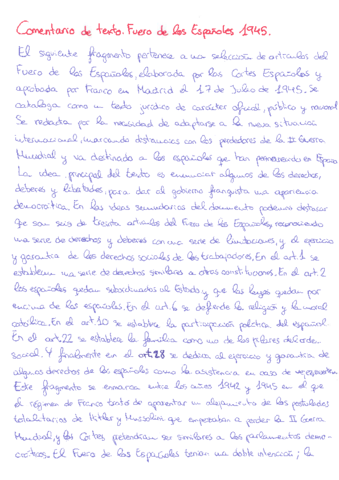 Comentario de texto. Fuero de los Españoles 1945.
El siguiente fragmento pertenece a una selección de artículos del
Fuero de los Españoles, elaborada por las Cortes Españolas y
aprobada por Franco en Madrid el 17 de Julio de 1945. Se
cataloga como un texto jurídico de carácter oficial, público y nacional
Se redacta por la necesidad de adaptarse a la nueva situación
internacional, marcando distancias con los perdedores de la II Guerra
Mundial y va destinado a los españoles que han permanecido en España
La idea principal del texto es enunciar algunos de los derechos,
deberes y libertades, para dar al gobierno franquista una apariencia
democrática. En las ideas secundarias del documento podemos destacar
que son seis de treinta artículos del Fuero de los Españoles, reconociendo
una serie de derechos y deberes con una serie de limitaciones, y el ejercicio
y garantía de los derechos sociales de los trabajadores. En el art. 1 se
establecen una serie de derechos similares a otras constituciones. En el art. 2
los españoles quedan subordinados al Estado y que las leyes quedan por
encima de los españoles. En el art. 6 se defiende la religión y la moral
católica. En el art. 10 se establece la participación política del español.
En el art. 22 se establece la familia como uno de los pilares del orden
social. Y finalmente en el art. 28 se dedica al ejercicio y garantía de
algunos derechos de los españoles como la asistencia en caso de
Este fragmento se enmarca entre los años 1942 y 1945 en el que
el régimen de Franco trata de aparentar un alejamiento de los postulados
totalitarios de Hitler y Mussolini que empezaban a perder la II Guerra
Mundial, y las Cortes pretendían ser similares a los parlamentos demo-
cráticos. El Fuero de los Españoles tenían una doble intención; la